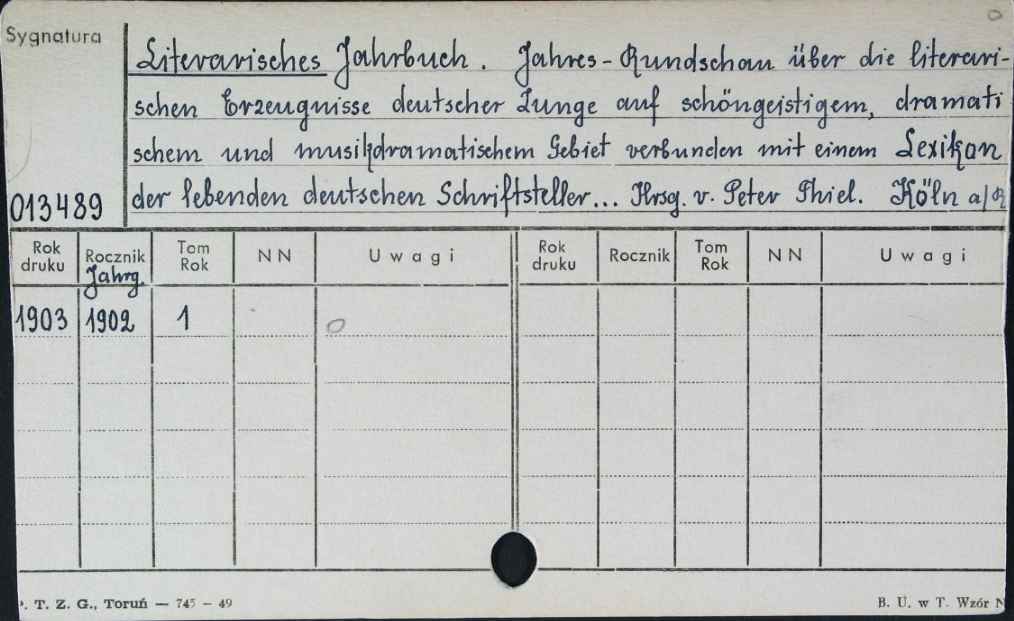 Sygnatura
Literarisches Jahrbuch. Jahres-Rundschau über die literari-
schen Erzeugnisse deutscher Zunge auf schöngeistigem, dramati
schem und musikdramatischem Gebiet verbunden mit einem Lexikon
013489 der lebenden deutschen Schriftsteller... Hrsg. v. Peter Thiel. Köln a/R
Rok druku Rocznik Jahrg. Tom Rok NN Uwagi Rok druku Rocznik Tom Rok NN Uwagi
1903 1902 1
. T. Z. G., Toruń — 745 — 49 B. U. w T. Wzór N